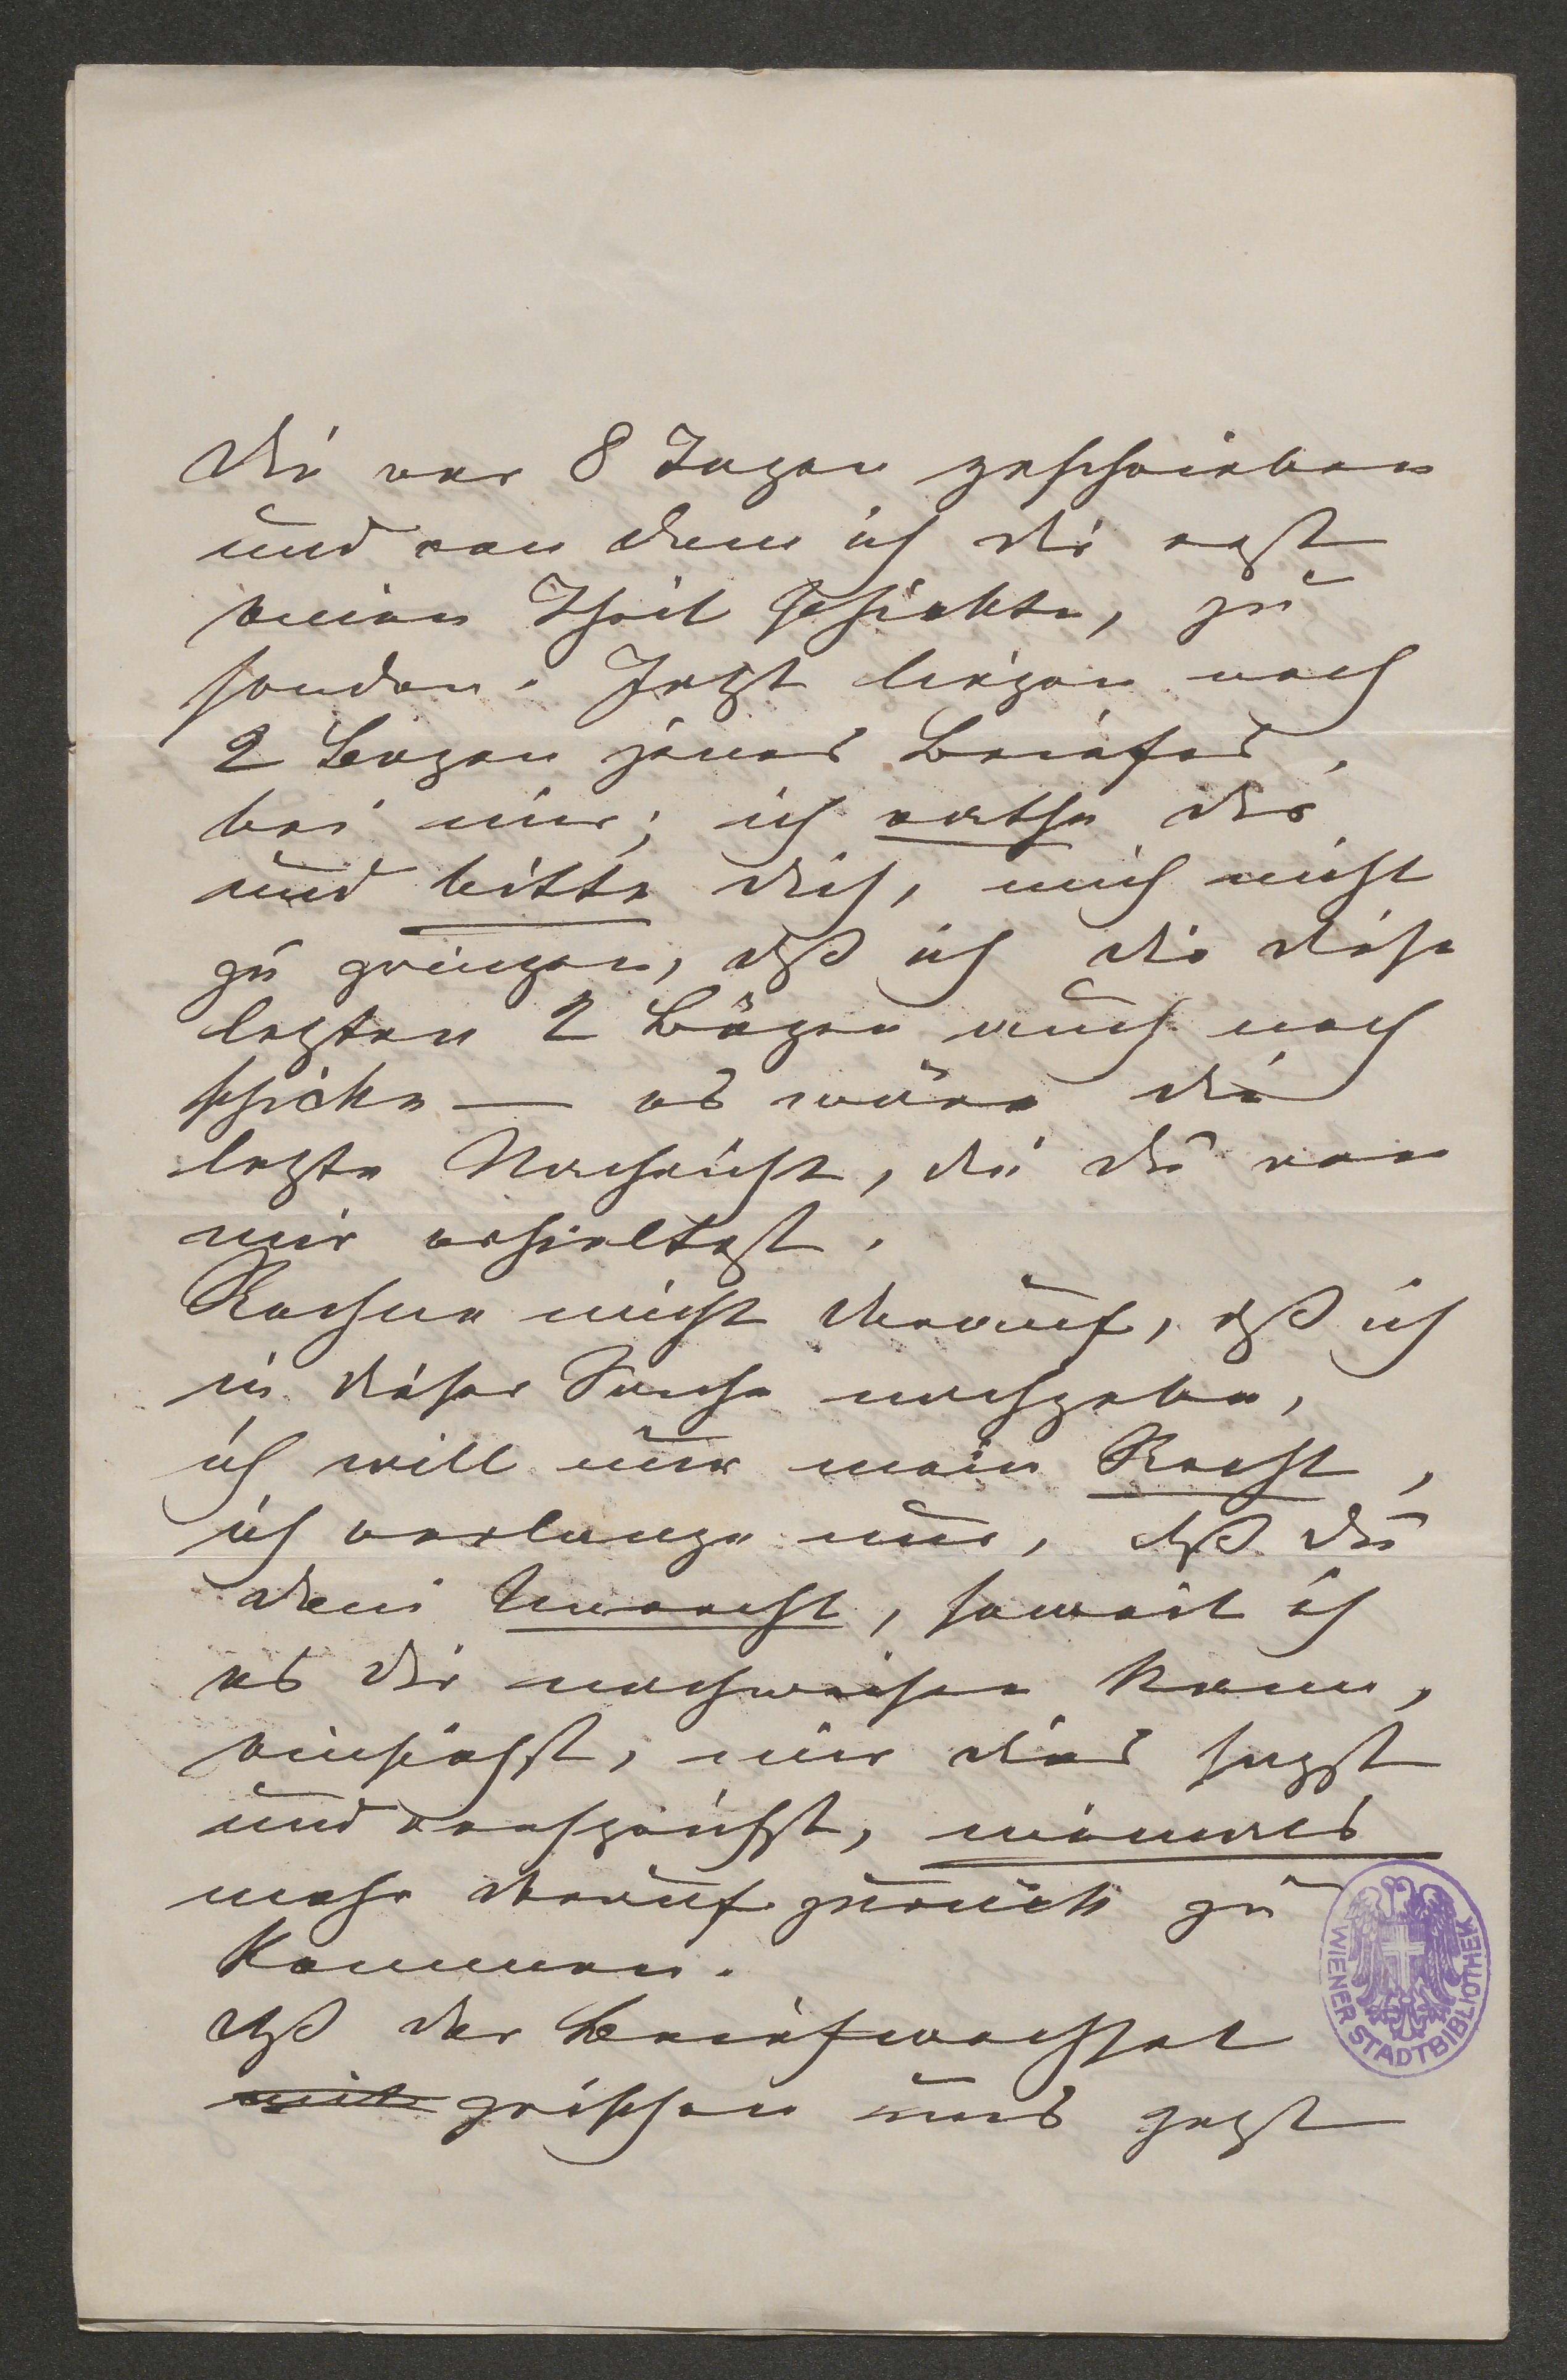 dir vor 8 Tagen geschrieben
und von dem ich dir erst
einen Theil schickte, zu
senden. Jetzt liegen noch
2 Bogen jenes Briefes
bei mir; ich rathe dir
und bitte dich, mich nicht
zu zwingen, dß ich dir diese
letzten 2 Bögen auch noch
schicke — es wäre die
letzte Nachricht, die du von
mir erhieltest.
Rechne nicht darauf, dß ich
in dieser Sache nachgebe,
ich will nur mein Recht,
ich verlange nur, dß du
dein Unrecht, soweit ich
es dir nachweisen kann,
einsiehst, mir dies sagst
und versprichst, niemals
mehr darauf zurück zu
kommen.
dß der Briefwechsel
mit zwischen uns jetzt
WIENER STADTBIBLIOTHEK